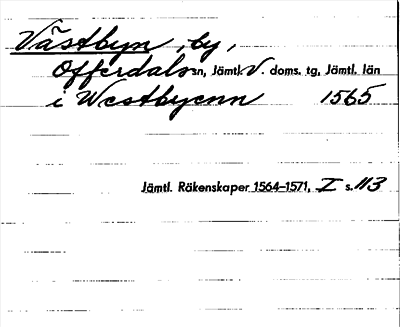 Västbyn, by,
Offerdals sn, Jämtl. V. doms. tg, Jämtl. län
i Westbyenn 1565
Jämtl. Räkenskaper 1564–1571, I s. 113